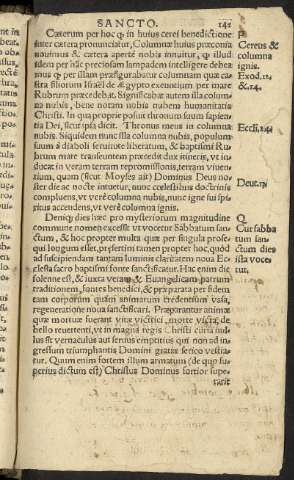 SANCTO. 142
Cæterum per hoc ꝙ in huius cerei benedictione
inter cætera pronunciatur, Columnæ huius præconia
nouimus & cætera aperte nobis innuitur, ꝙ illud
idem per hāc preciosam lampadem intelligere debea
mus ꝙ per illam præfigurabatur columnam quæ ca
stra filiorum Israël de Ægypto exeuntium per mare
Rubrum præcedebat. Significabat autem illa colum
na nubis, bene notam nobis nubem humanitatis
Christi. In qua proprie positus thronus suum sapien
tia Dei, scut ipsa dicit. Thronus meus in columna
nubis. Siquidem tunc illa columna nubis, populum
suum à diaboli seruitute liberatum, & baptismi Ru
brum mare transeuntem præcedit dux itineris, vt in
ducat in veram terram repromissionis, terram viuen
tium, quam (sicut Moyses ait) Dominus Deus no
ster die ac nocte intuetur, nunc cœlestibus doctrinis
compluens, vt vere columna nubis, nunc igne sui spi
ritus accendens, vt vere columna ignis.
Deniq; dies hæc pro mysteriorum magnitudine
commune nomen excessit vt vocetur Sabbatum san
ctum, & hoc propter multa quæ per singula prose
qui longum esset, præsertim tamen propter hoc, quòd
ad suscipiendam tantam luminis claritatem noua Ec
clesia sacro baptismi fonte sanctificatur. Hac enim die
solenne est, & iuxta veram & Euangelicam patrum
traditionem, fontes benedici, & præparata per fidem
tam corporum quàm animarum credentium vasa,
regenerationis noua sanctificari. Præparantur animæ
quæ mortuæ fuerant vitæ victrici, morte victa, de
bello reuertenti, vt in magni regis Christi curia nul
lus sit vernaculus aut seruus emptitius qui non ad in
gressum triumphantis Domini gratæ serico vestia
tur. Quum enim fortem illum armatum (de quo su
perius dictum est) Christus Dominus fortior supe-
rarit
P
Cereus &
columna
ignis.
Exod.13
&.14.
Eccli.24.
Deut.11
Q
Cur sabba
tum san-
ctum dies
ista voce
tur.